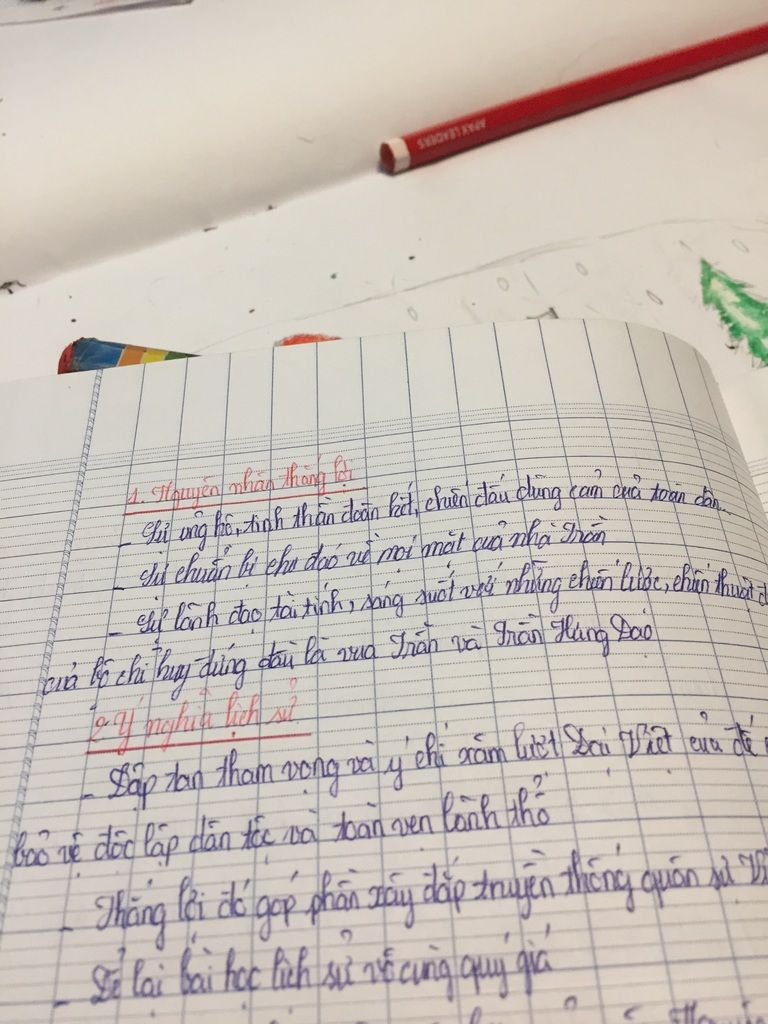 APAX LEADERS
1. Nguyên nhân thắng lợi
- Sự ủng hộ, tinh thần đoàn kết, chiến đấu dũng cảm của toàn dân
- Sự chuẩn bị chu đáo về mọi mặt của nhà Trần
- Sự lãnh đạo tài tình, sáng suốt với những chiến lược, chiến thuật đ
của bộ chỉ huy đứng đầu là vua Trần và Trần Hưng Đạo
2. Ý nghĩa lịch sử
- Đập tan tham vọng và ý chí xâm lược Đại Việt của đế
bảo vệ độc lập dân tộc và toàn vẹn lãnh thổ
- Thắng lợi đó góp phần xây đắp truyền thống quân sự Vi
- Để lại bài học lịch sử vô cùng quý giá